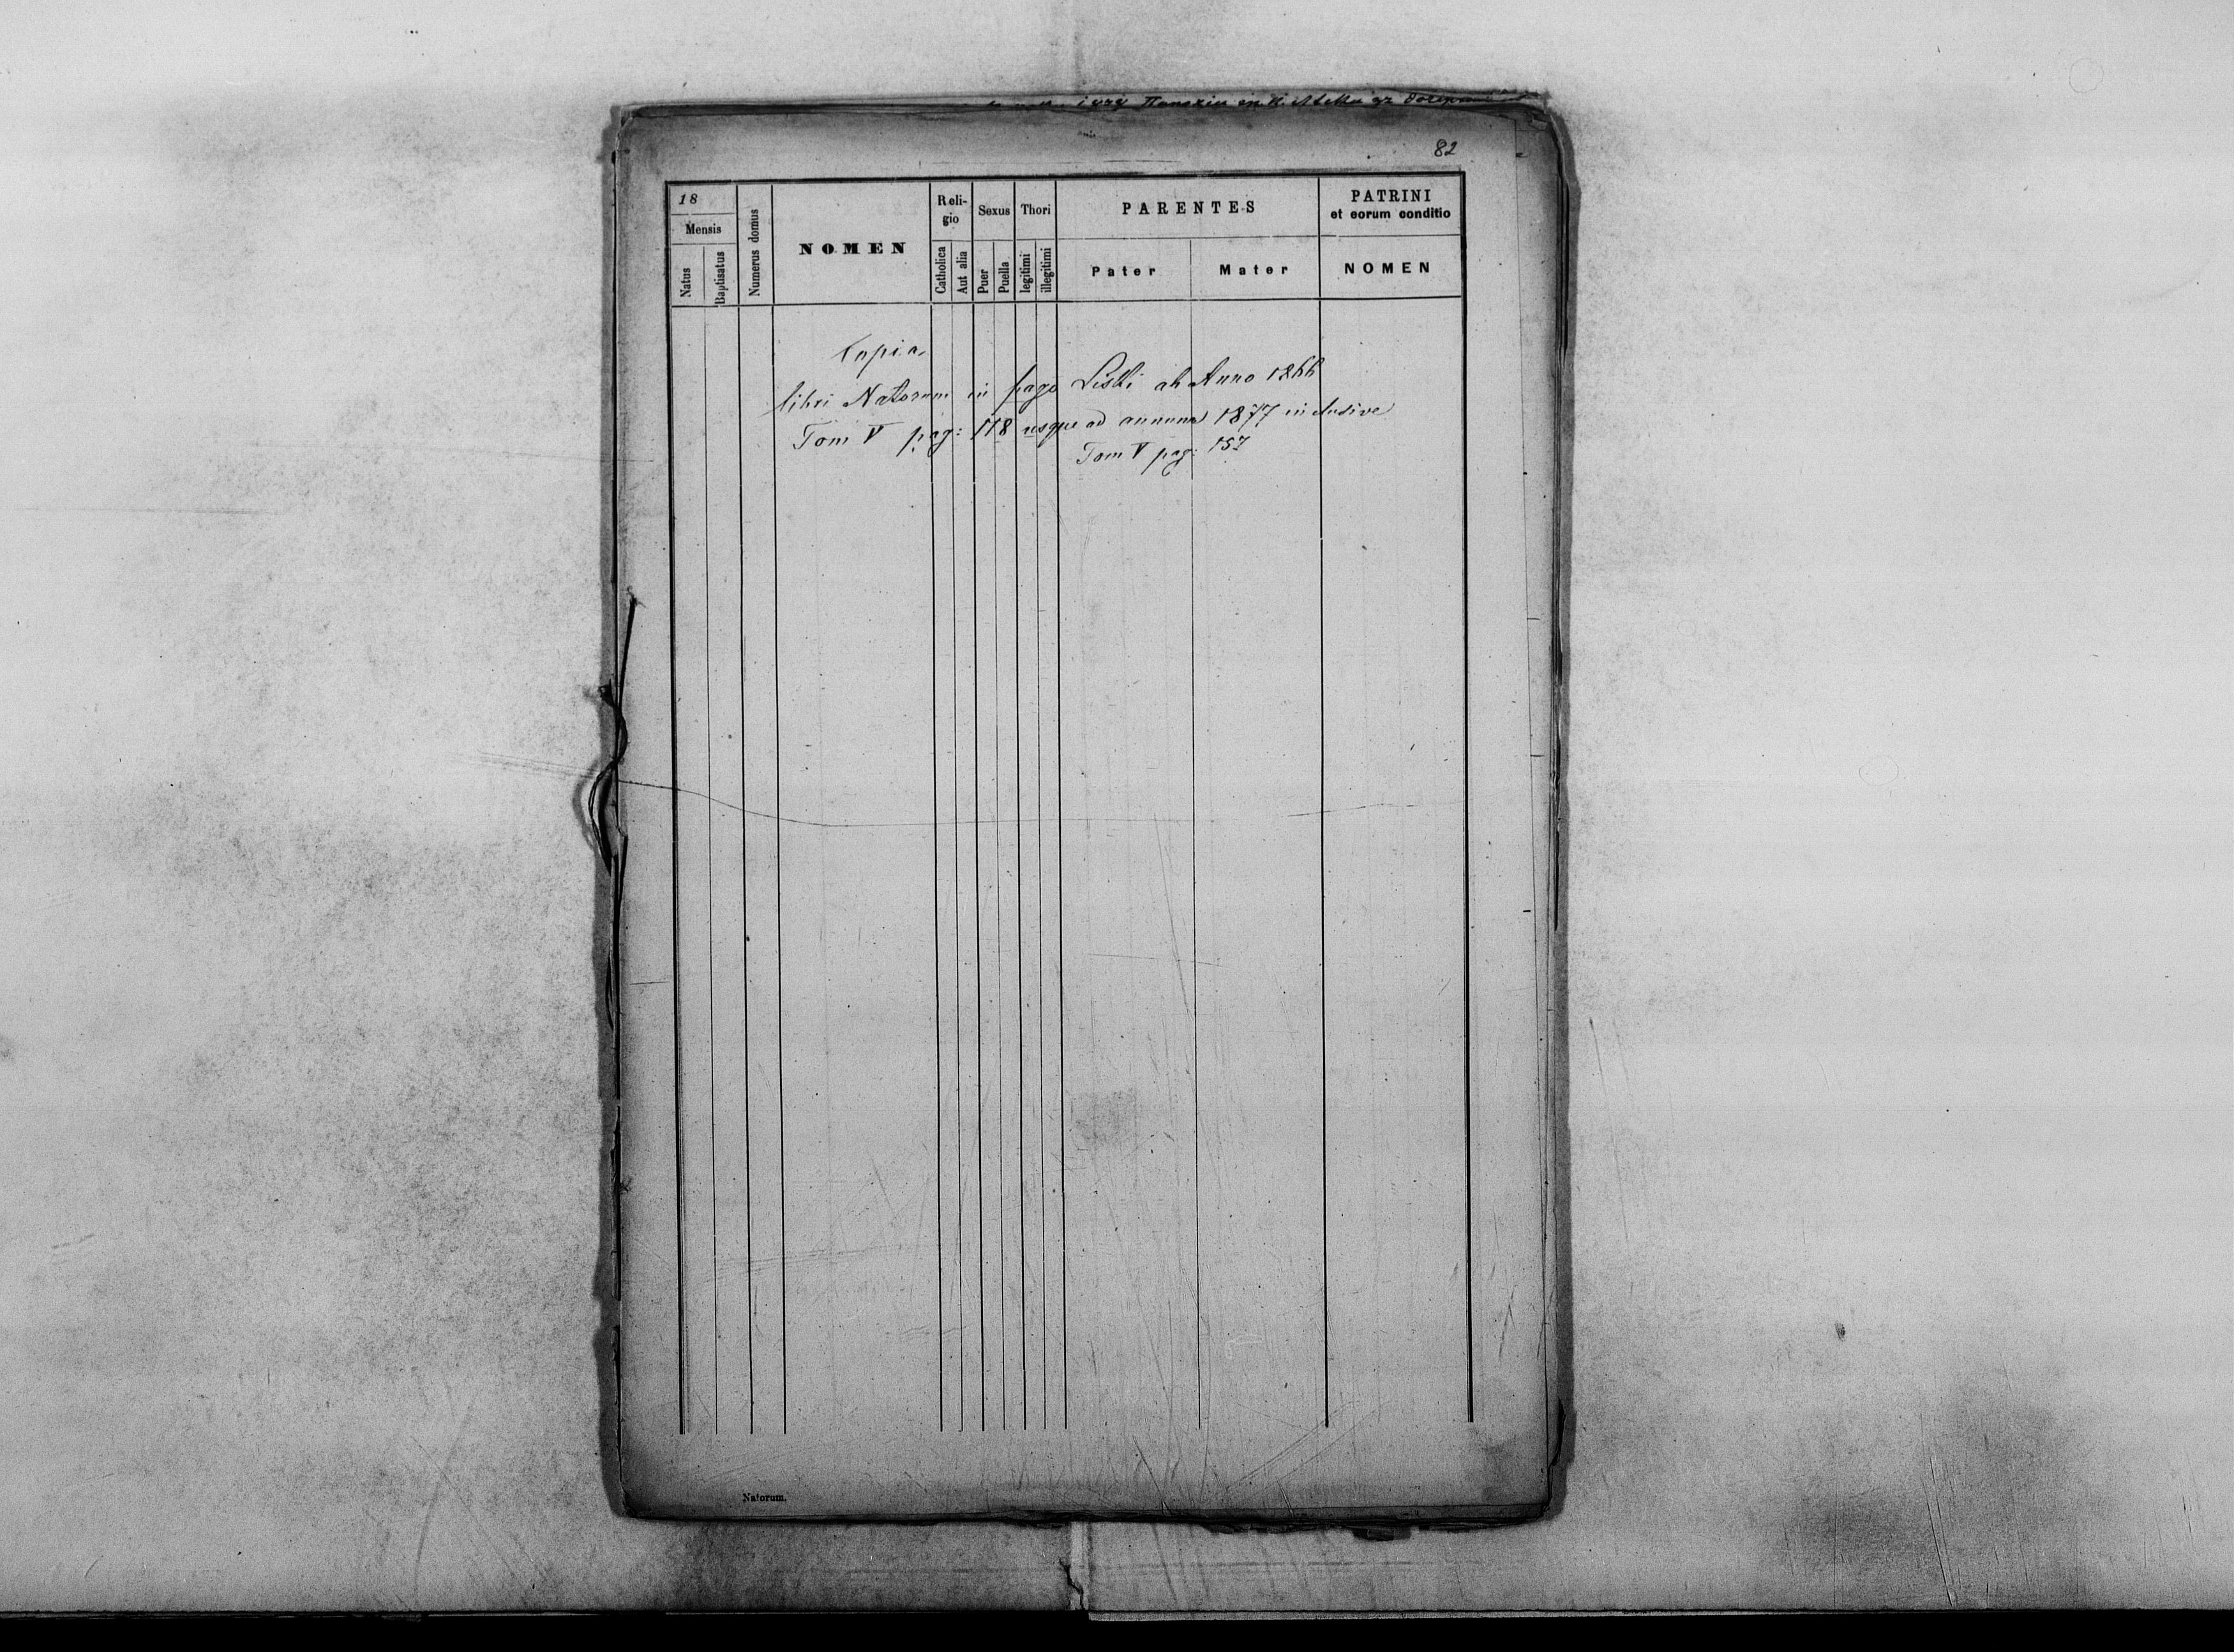 82
18
Mensis
Natus
Baptisatus
Numerus domus
NOMEN
Reli-
gio
Catholica
Aut alia
Sexus
Puer
Puella
Thori
legitimi
illegitimi
PARENTES
Pater
Mater
PATRINI
et eorum conditio
NOMEN
Copia
libri Natorum in pago Liski ab Anno 1866
Tom V pag: 118 usque ad annum 1877 inclusive
Tom V pag: 157
Natorum.